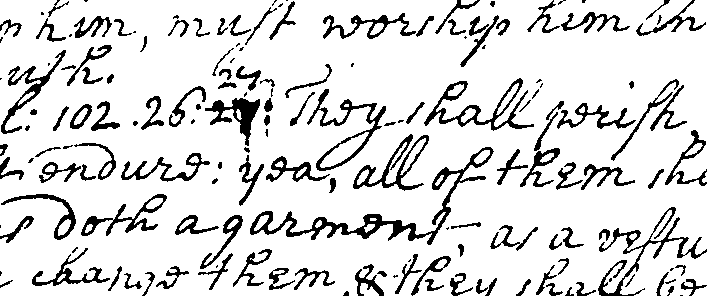 him, must worship him in
uth.
l: 102. 26. 27: They shall perish,
endure: yea, all of them she
doth a garment, as a vestu
change them & they shall be